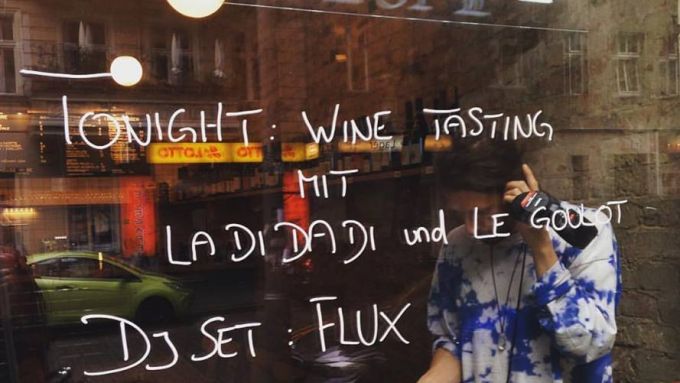 TONIGHT: WINE TASTING
MIT
LADIDADI und LE GOULOT
DJ SET: FLUX